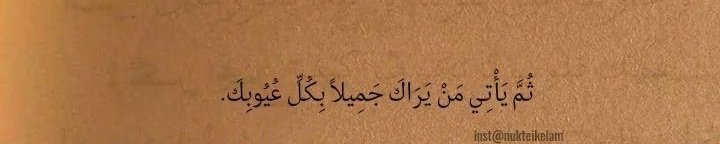 ثُمَّ يَأْتِي مَنْ يَرَاكَ جَمِيلاً بِكُلِّ عُيُوبِكَ.
inst@nukteikelam